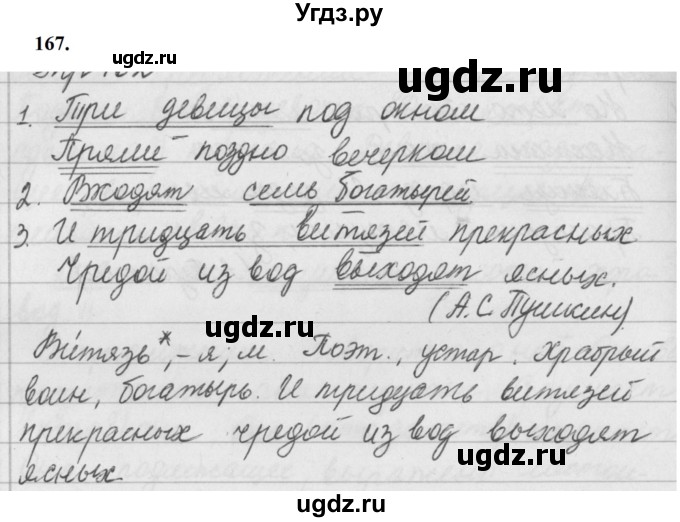 Угдз.ру
167.
1. Три девицы под окном
Пряли поздно вечерком
2. Входят семь богатырей
3. И тридцать витязей прекрасных
Чредой из вод выходят ясных.
(А.С. Пушкин).
Ви́тязь*, -я; м. Поэт., устар. Храбрый
воин, богатырь. И тридцать витязей
прекрасных чредой из вод выходят
ясных
ugdz.ru
ugdz.ru
ugdz.ru
ugdz.ru
ugdz.ru
ugdz.ru
ugdz.ru